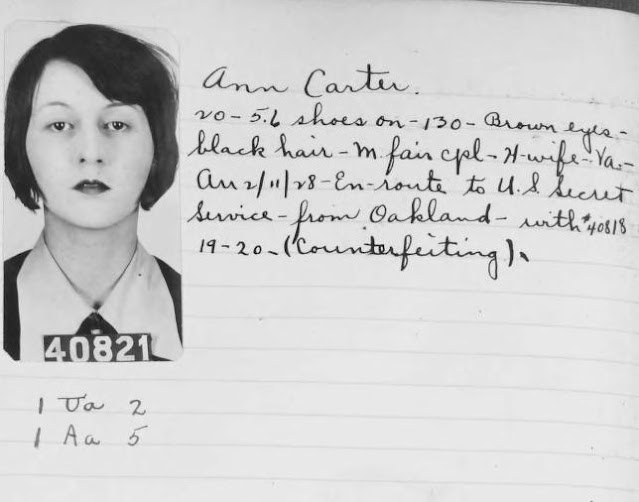 Ann Carter.
20 - 5.6 shoes on - 130 - Brown eyes -
black hair - M. fair cpl - H-wife - Va. -
Arr 2/11/28 - En-route to U.S. Secret
Service - from Oakland - with #40818
19 - 20 - (Counterfeiting).
40821
1 Ua 2
1 Aa 5